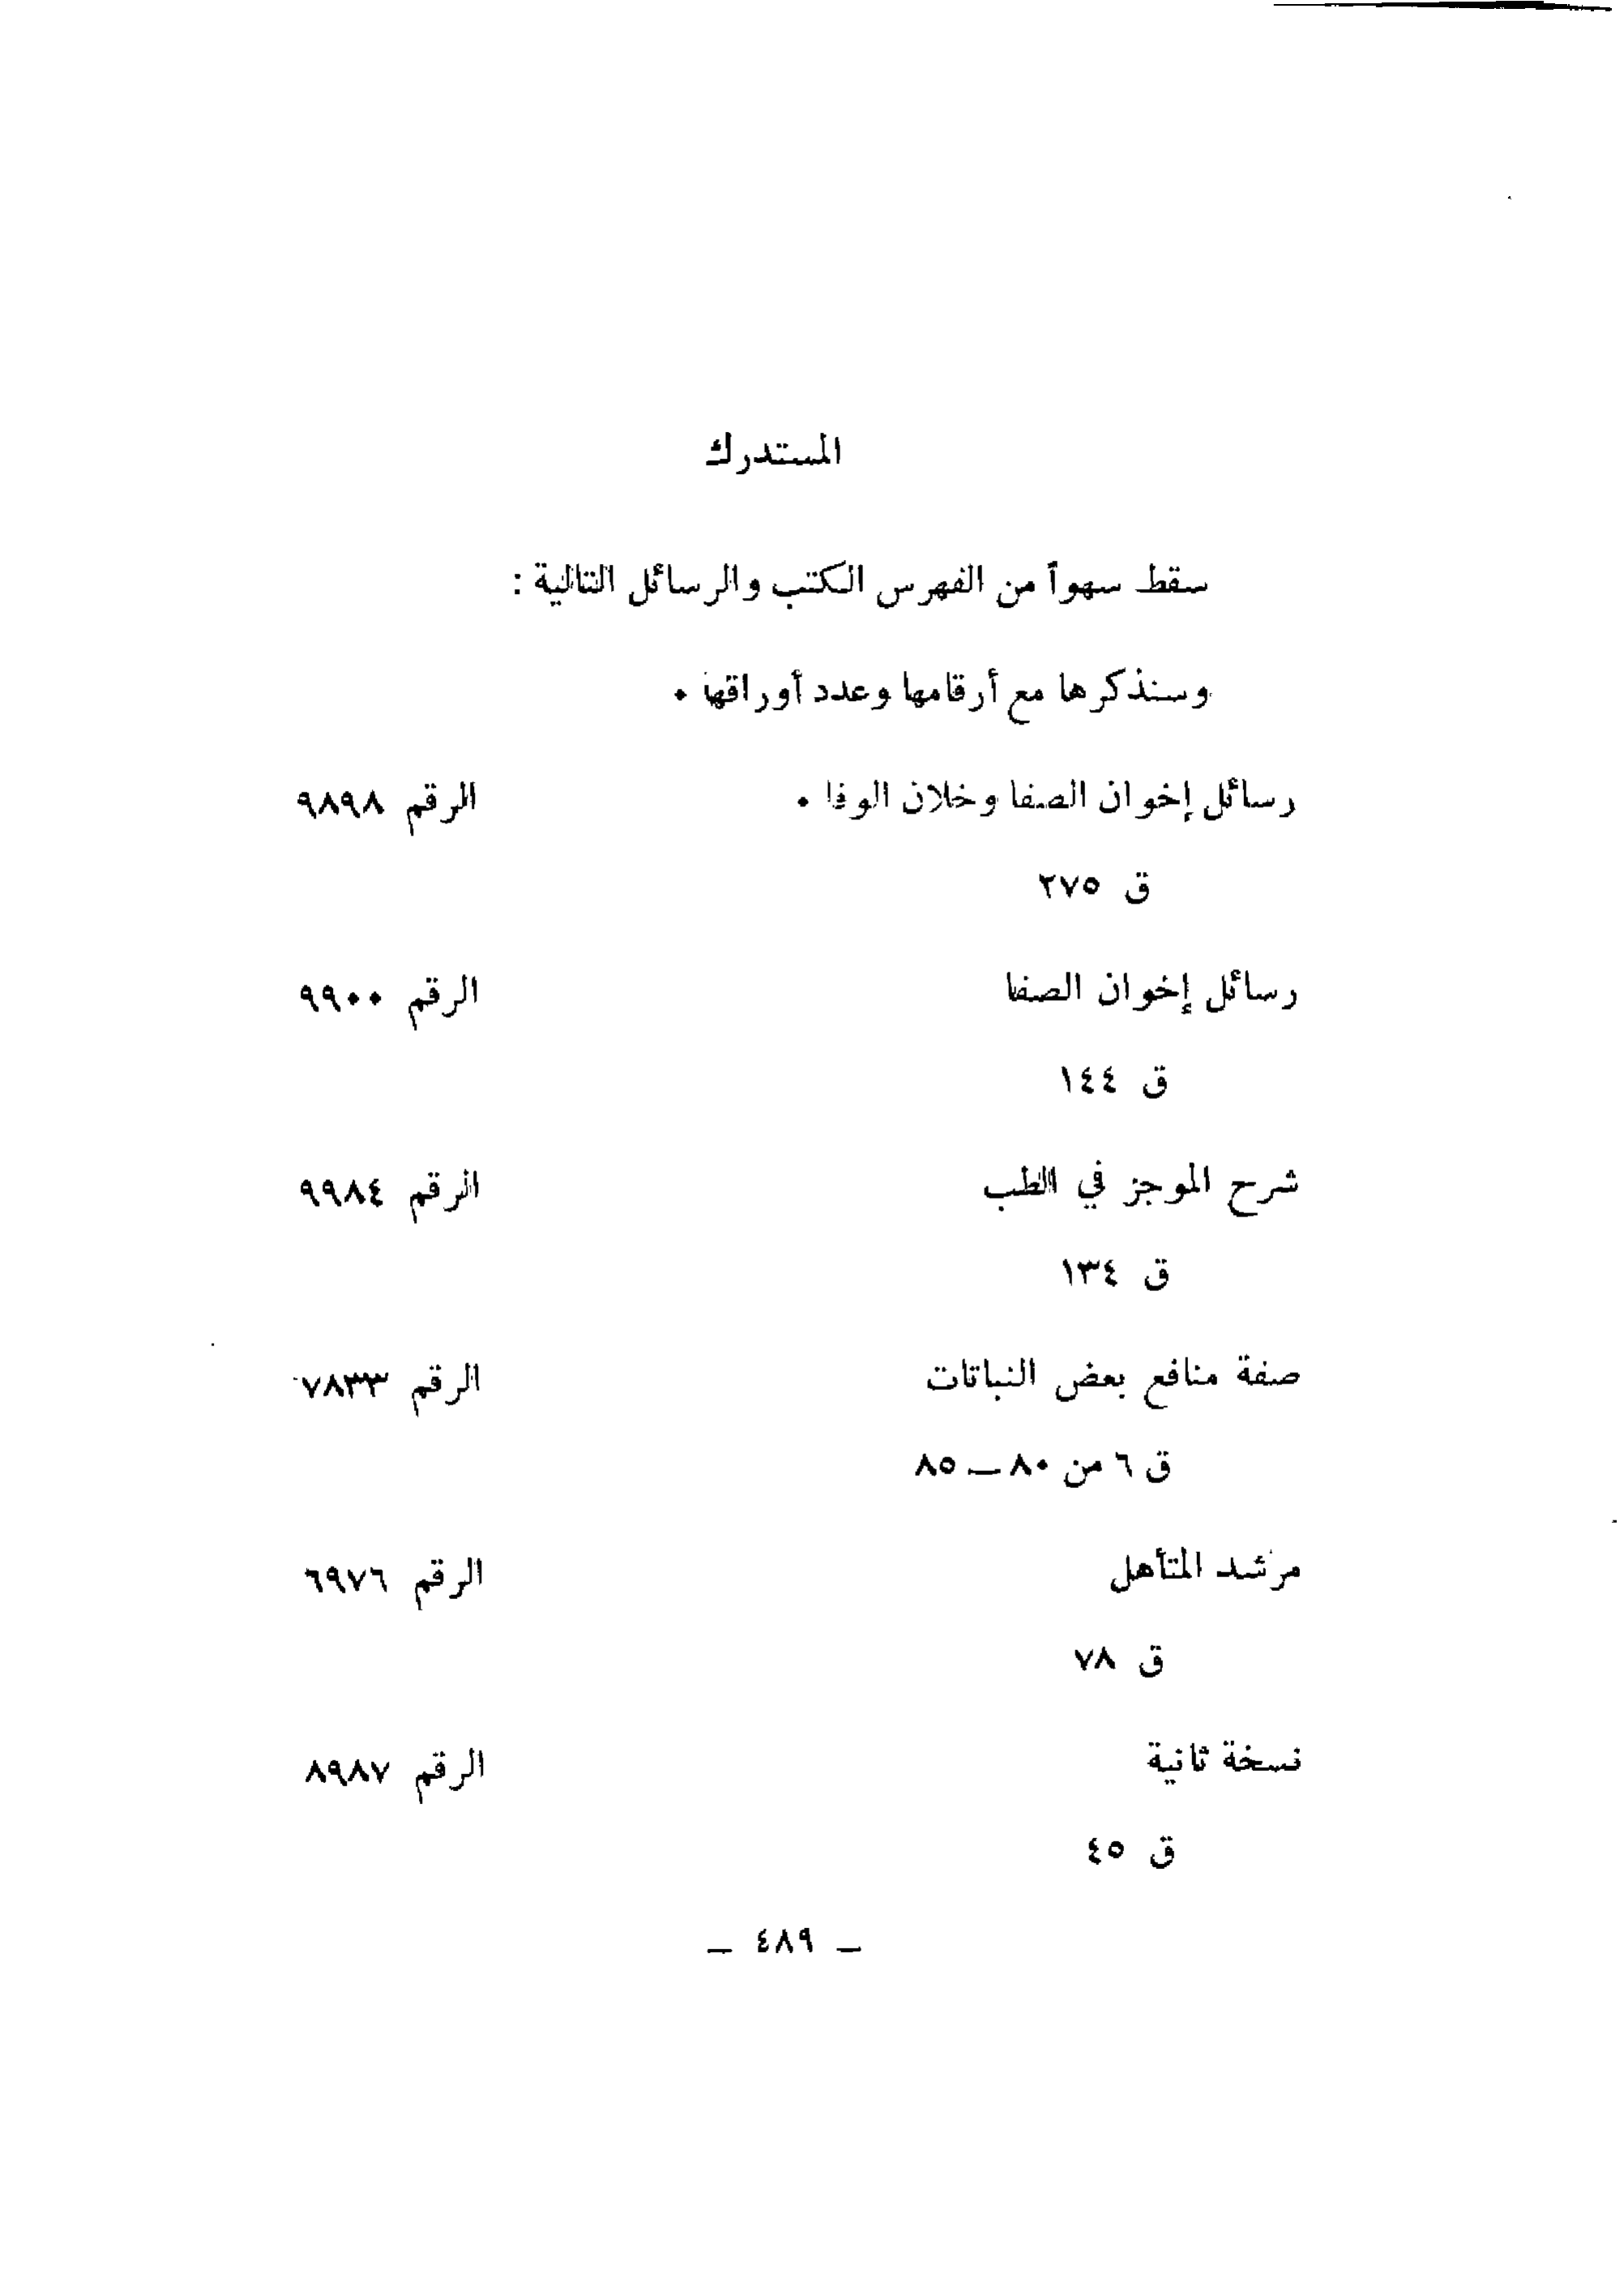 المستدرك
سقط سهواً من الفهرس الكتب والرسائل التالية :
وسنذكرها مع أرقامها وعدد أوراقها ٠
رسائل إخوان الصفا وخلان الوفا ٠ الرقم ٩٨٩٨
ق ٢٧٥
رسائل إخوان الصفا الرقم ٩٩٠٠
ق ١٤٤
شرح الموجز في الطب الرقم ٩٩٨٤
ق ١٣٤
صفة منافع بعض النباتات الرقم ٧٨٣٣
ق ٦ من ٨٠ ــ ٨٥
مرشد المتأهل الرقم ٦٩٧٦
ق ٧٨
نسخة ثانية الرقم ٨٩٨٧
ق ٤٥
ــ ٤٨٩ ــ